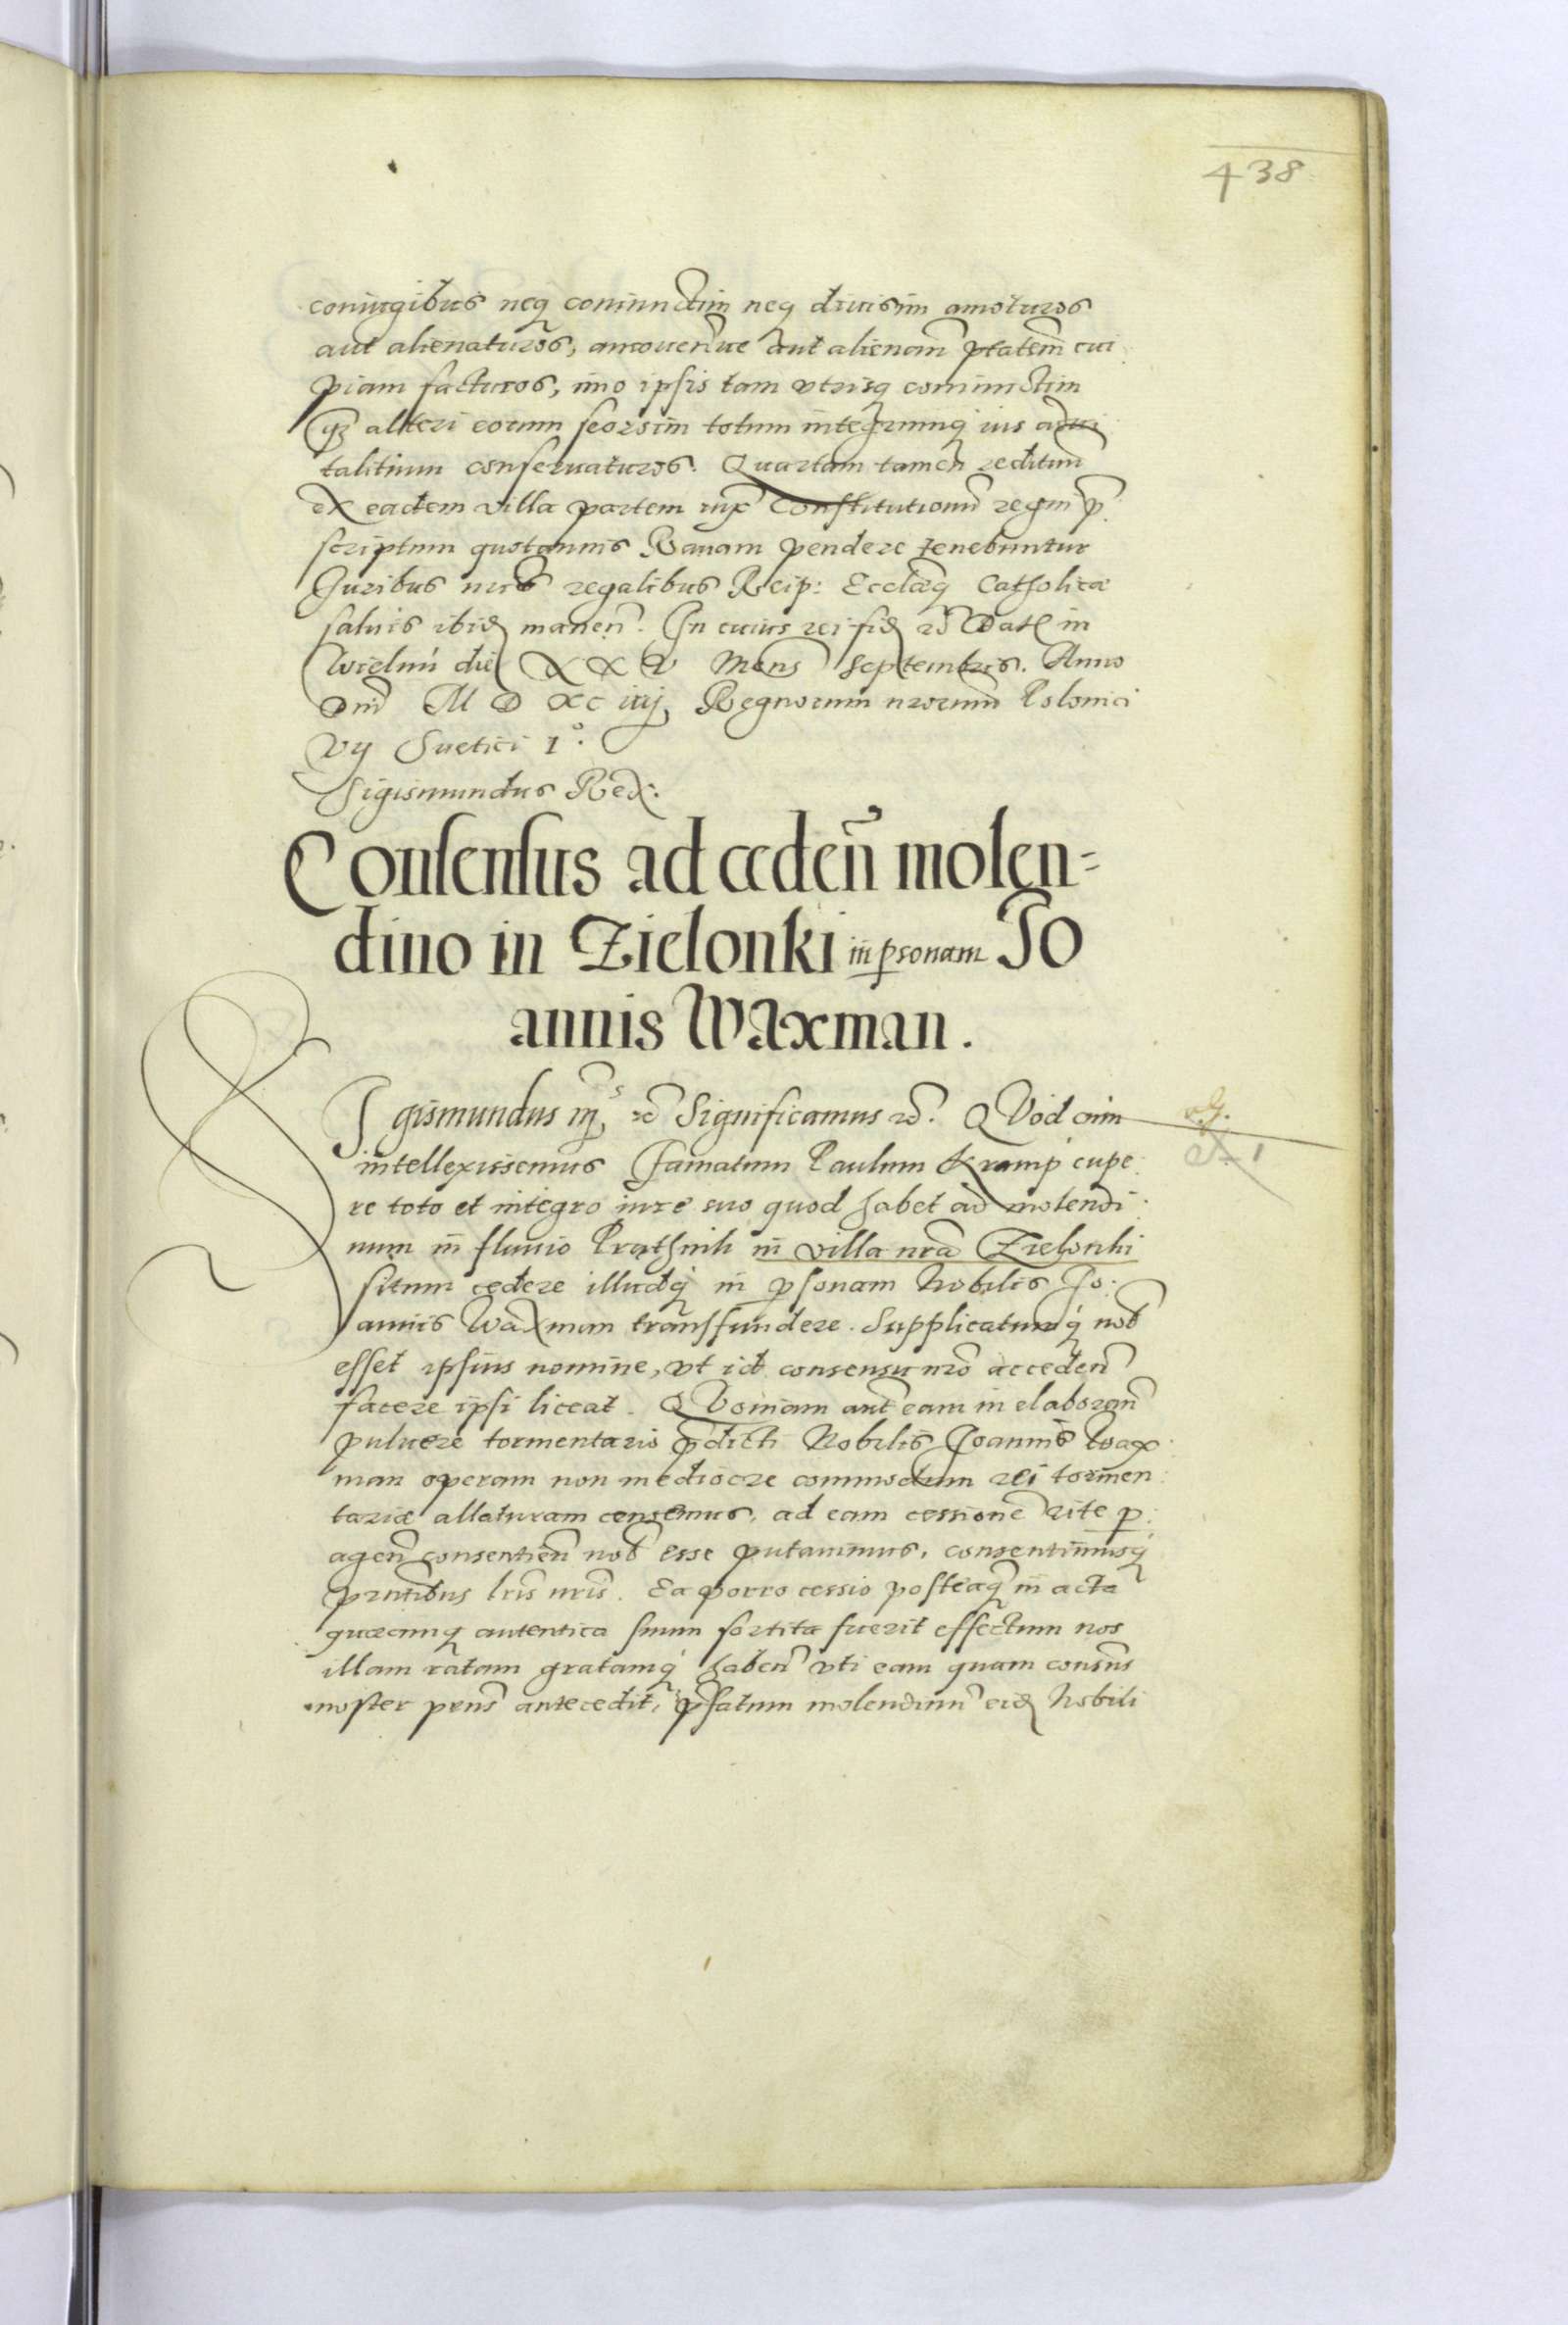 438
coniugibus neq coniunctim neq diuisim amoturos
aut alienaturos, amouendiue aut alienandi ptatem cui
piam facturos, imo ipsis tam vtrisq coniunctim
q alteri eorum seorsim totum integrumq ius adui
talitium conseruaturos. Quartam tamen redituum
ex eadem villa partem iux Constitutionum regni p
scriptum quotannis Rauam pendere tenebuntur
Juribus nris regalibus Reip: Ecclæq Catholicæ
saluis ibid manen. In cuius rei fid &c Dat in
Wielun die XXV Mens Septembris. Anno
Dni M D XC iiij Regnorum nrorum Polonici
Vij Suetici 1º.
Sigismundus Rex.
Consensus ad ceden molen=
dino in Zielonki in personam Jo
annis Waxman.
Sigismundus 3s &c Significamus &c. QVod cum
intellexissemus Famatum Paulum Kramp cupe
re toto et integro iure suo quod habet ad molendi
num in fluuio Prathnik in villa nra Zielonki
situm cedere illudq in psonam Nobilis Jo
annis Waxman transfundere. Supplicatumq nob
esset ipsius nomine, vt id consensu nro acceden
facere ipsi liceat. QVoniam aut eam in elaboran
puluere tormentario pdicti Nobilis Joannis Wax
man operam non mediocre commodum rei tormen
tariæ allaturam censemus, ad eam cessione rite p
agen consentien nob esse putauimus, consentimusq
pntibus lris nris. Ea porro cessio posteaq in acta
quæcunq autentica suum sortita fuerit effectum nos
illam ratam gratamq haben vti eam quam consens
noster prens antecedit, pfatum molendinum eid Nobili